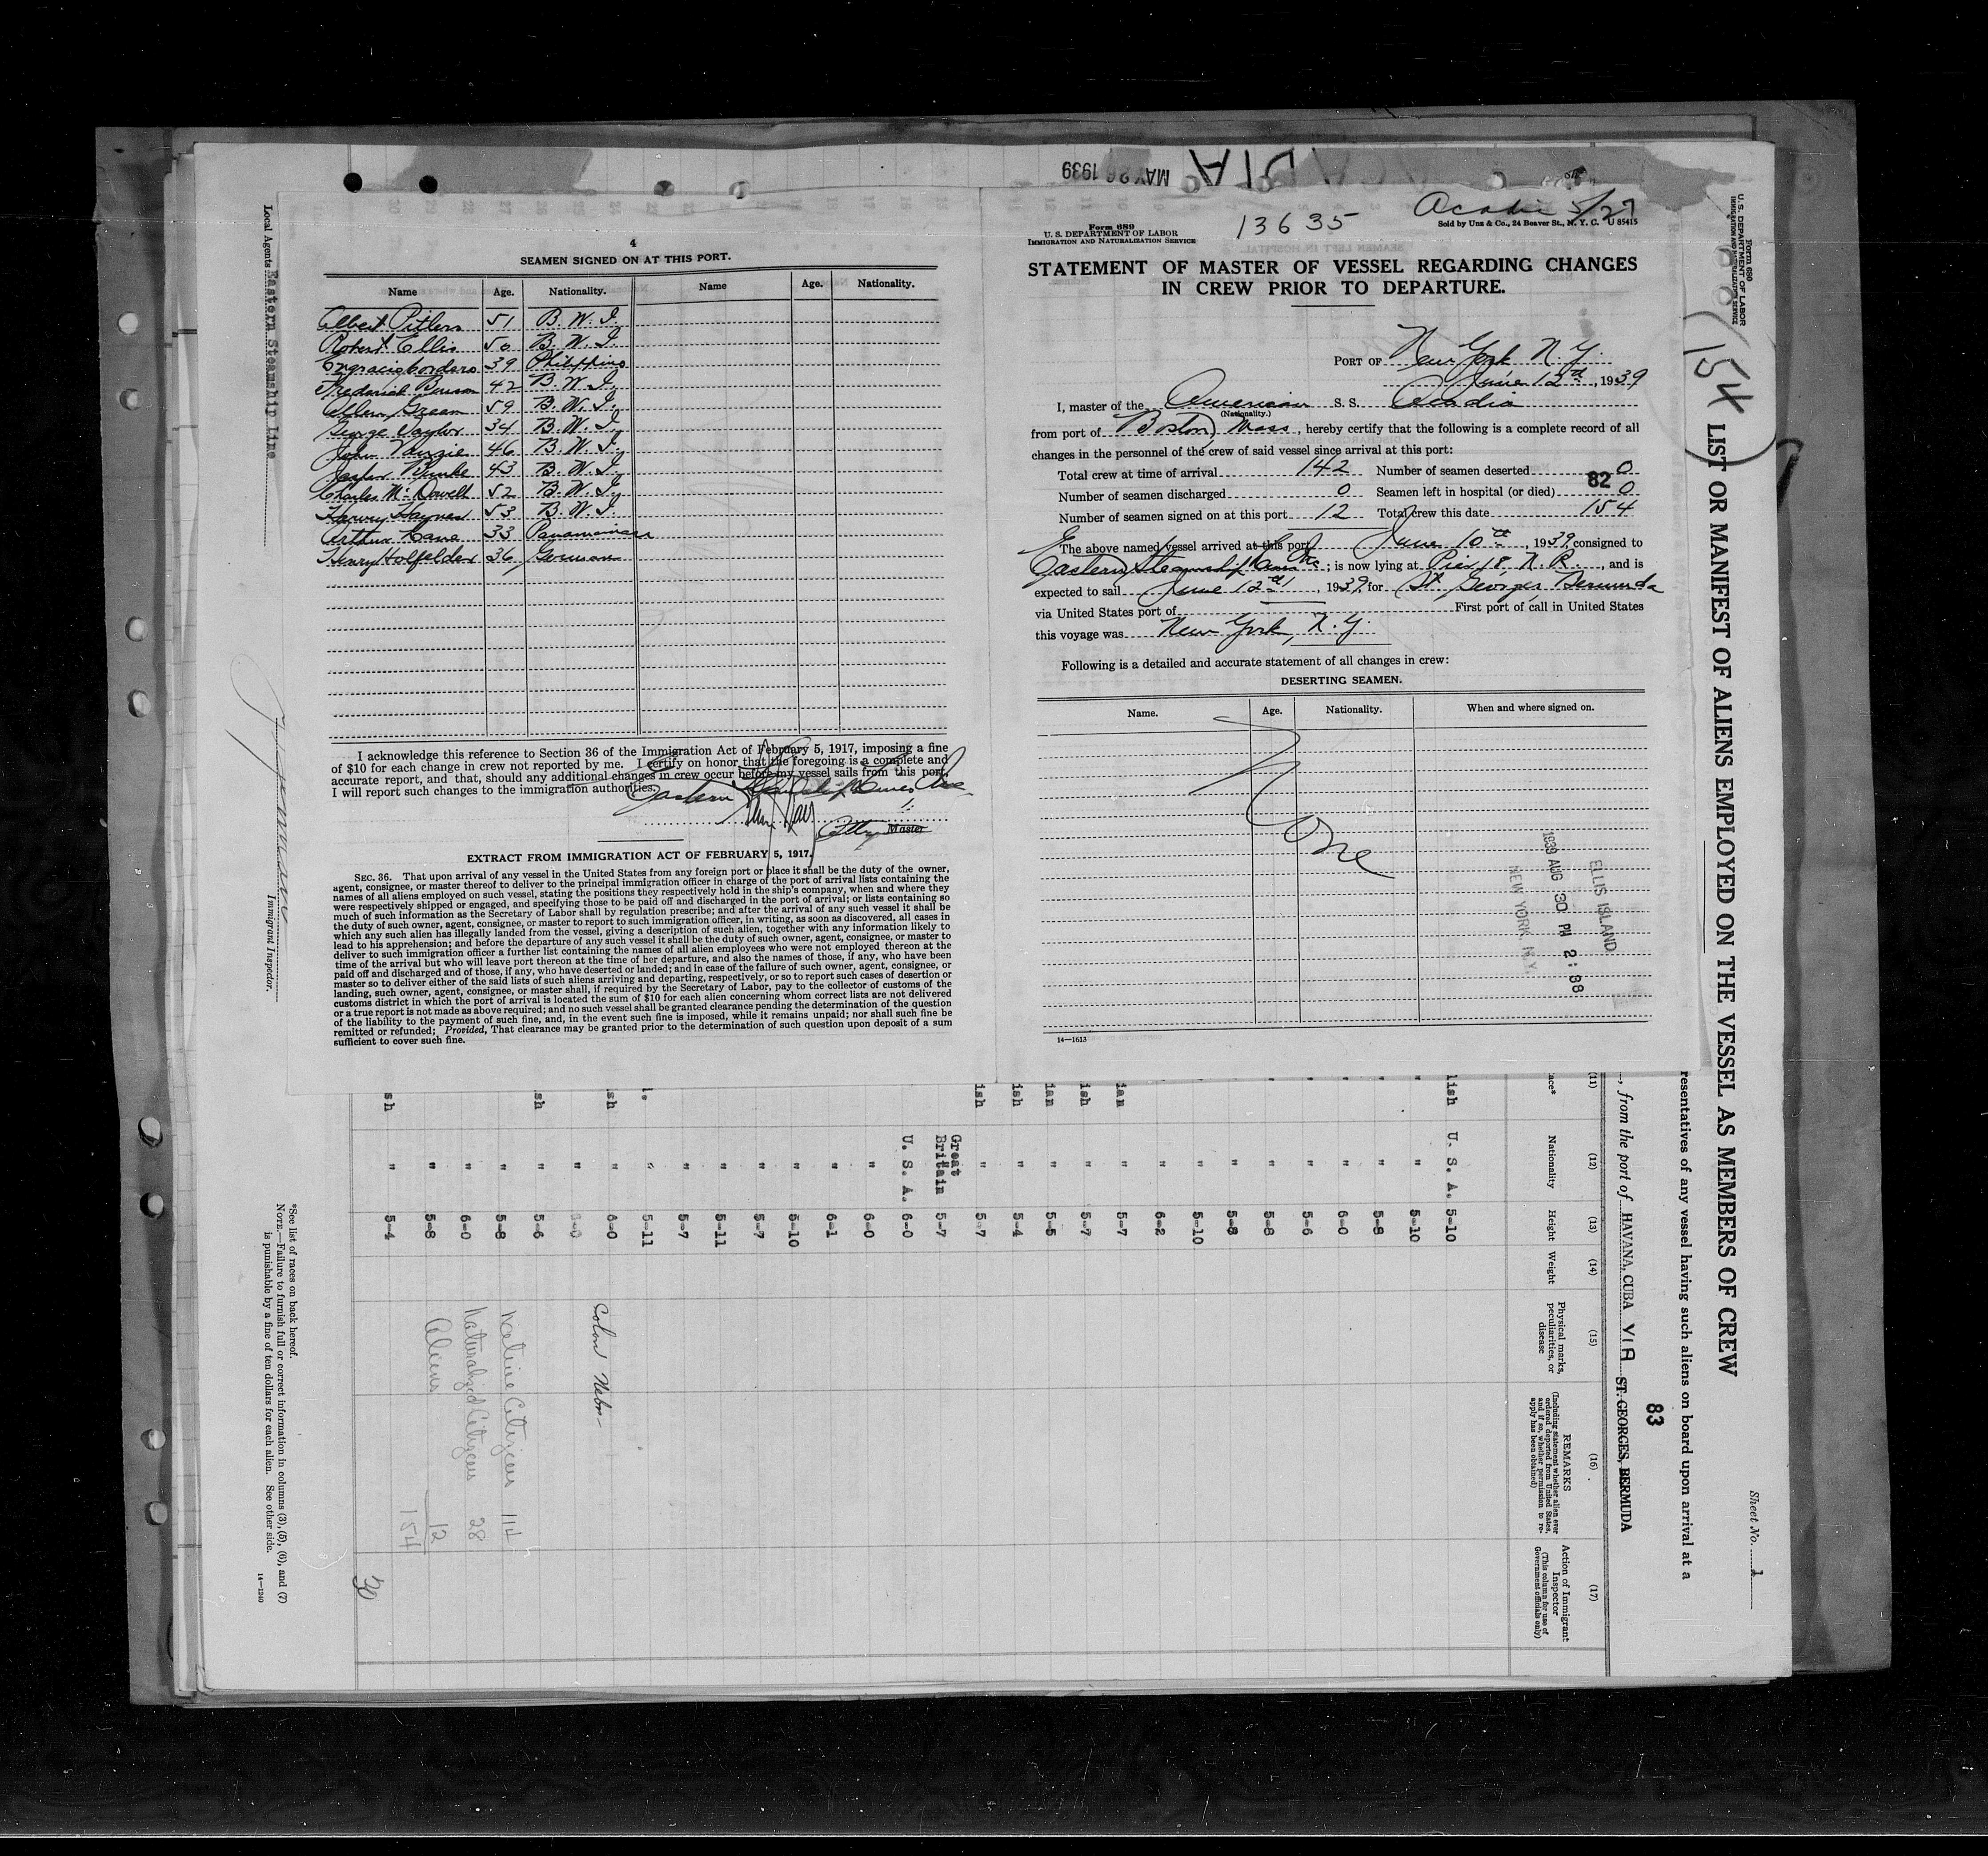 4
SEAMEN SIGNED ON AT THIS PORT.
Name Age. Nationality. Name Age. Nationality.
Albert 51 B. W. I.
Robert Ellis 50 B. W. I.
39 Philippino
Frederick 42 B. W. I.
59 B. W. I.
George Taylor 34 B. W. I.
John 46 B. W. I.
Jasper Burke 43 B. W. I.
Charles McDowell 52 B. W. I.
Harvey Haynes 53 B. W. I.
Arthur 33 Panamanian
Henry Holfelder 36 German
I acknowledge this reference to Section 36 of the Immigration Act of February 5, 1917, imposing a fine
of $10 for each change in crew not reported by me. I certify on honor that the foregoing is a complete and
accurate report, and that, should any additional changes in crew occur before my vessel sails from this port,
I will report such changes to the immigration authorities.
Eastern Steamship Lines Inc
Atty Master
EXTRACT FROM IMMIGRATION ACT OF FEBRUARY 5, 1917.
SEC. 36. That upon arrival of any vessel in the United States from any foreign port or place it shall be the duty of the owner,
agent, consignee, or master thereof to deliver to the principal immigration officer in charge of the port of arrival lists containing the
names of all aliens employed on such vessel, stating the positions they respectively hold in the ship's company, when and where they
were respectively shipped or engaged, and specifying those to be paid off and discharged in the port of arrival; or lists containing so
much of such information as the Secretary of Labor shall by regulation prescribe; and after the arrival of any such vessel it shall be
the duty of such owner, agent, consignee, or master to report to such immigration officer, in writing, as soon as discovered, all cases in
which any such alien has illegally landed from the vessel, giving a description of such alien, together with any information likely to
lead to his apprehension; and before the departure of any such vessel it shall be the duty of such owner, agent, consignee, or master to
deliver to such immigration officer a further list containing the names of all alien employees who were not employed thereon at the
time of the arrival but who will leave port thereon at the time of her departure, and also the names of those, if any, who have been
paid off and discharged and of those, if any, who have deserted or landed; and in case of the failure of such owner, agent, consignee, or
master so to deliver either of the said lists of such aliens arriving and departing, respectively, or so to report such cases of desertion or
landing, such owner, agent, consignee, or master shall, if required by the Secretary of Labor, pay to the collector of customs of the
customs district in which the port of arrival is located the sum of $10 for each alien concerning whom correct lists are not delivered
or a true report is not made as above required; and no such vessel shall be granted clearance pending the determination of the question
of the liability to the payment of such fine, and, in the event such fine is imposed, while it remains unpaid; nor shall such fine be
remitted or refunded; Provided, That clearance may be granted prior to the determination of such question upon deposit of a sum
sufficient to cover such fine.
MAY 26 1939
Acadia 5/27
13635
Form 689
U. S. DEPARTMENT OF LABOR
IMMIGRATION AND NATURALIZATION SERVICE
Sold by Unz & Co., 24 Beaver St., N. Y. C. U 85415
STATEMENT OF MASTER OF VESSEL REGARDING CHANGES
IN CREW PRIOR TO DEPARTURE.
PORT OF New York N. Y.
June 12th, 1939
I, master of the American S. S. Acadia
(Nationality.)
from port of Boston, Mass, hereby certify that the following is a complete record of all
changes in the personnel of the crew of said vessel since arrival at this port:
Total crew at time of arrival 142 Number of seamen deserted 0
Number of seamen discharged 0 Seamen left in hospital (or died) 0
82
Number of seamen signed on at this port 12 Total crew this date 154
The above named vessel arrived at this port June 10th, 1939, consigned to
Eastern Steamship Lines Inc; is now lying at Pier 18, N. R., and is
expected to sail June 12th, 1939, for St Georges, Bermuda
via United States port of First port of call in United States
this voyage was New York, N. Y.
Following is a detailed and accurate statement of all changes in crew:
DESERTING SEAMEN.
Name. Age. Nationality. When and where signed on.
None
ELLIS ISLAND
1939 AUG 30 PM 2:38
NEW YORK, N.Y.
14—1613
Form 680
U. S. DEPARTMENT OF LABOR
IMMIGRATION AND NATURALIZATION SERVICE
154
LIST OR MANIFEST OF ALIENS EMPLOYED ON THE VESSEL AS MEMBERS OF CREW
Sheet No. 1
resentatives of any vessel having such aliens on board upon arrival at a
83
, from the port of HAVANA, CUBA VIA ST. GEORGES, BERMUDA
(11) (12) (13) (14) (15) (16) (17)
Nationality Height Weight
Physical marks, peculiarities, or disease
REMARKS
(Including statement whether alien ever ordered deported from United States, and if so, whether permission to reapply has been obtained)
Action of Immigrant Inspector
(This column for use of Government officials only)
lish U. S. A. 5-10
" 5-10
" 5-8
" 6-0
" 5-6
" 5-8
" 5-8
" 5-10
" 6-2
ian " 5-7
ish " 5-7
ian " 5-5
ish " 5-4
ish " 5-7
Great Britain 5-7
U. S. A. 6-0
" 6-0
" 6-1
" 5-10
" 5-7
" 5-11
" 5-7
" 5-11
ish " 6-0
"
sh " 5-6
" 5-8
" 6-0
" 5-8
sh " 5-4
Native Citizens 114
Naturalized Citizens 28
Aliens 12
154
30
*See list of races on back hereof.
NOTE.—Failure to furnish full or correct information in columns (3), (5), (6), and (7)
is punishable by a fine of ten dollars for each alien. See other side.
14—1240
Local Agents Eastern Steamship Line
Immigrant Inspector.